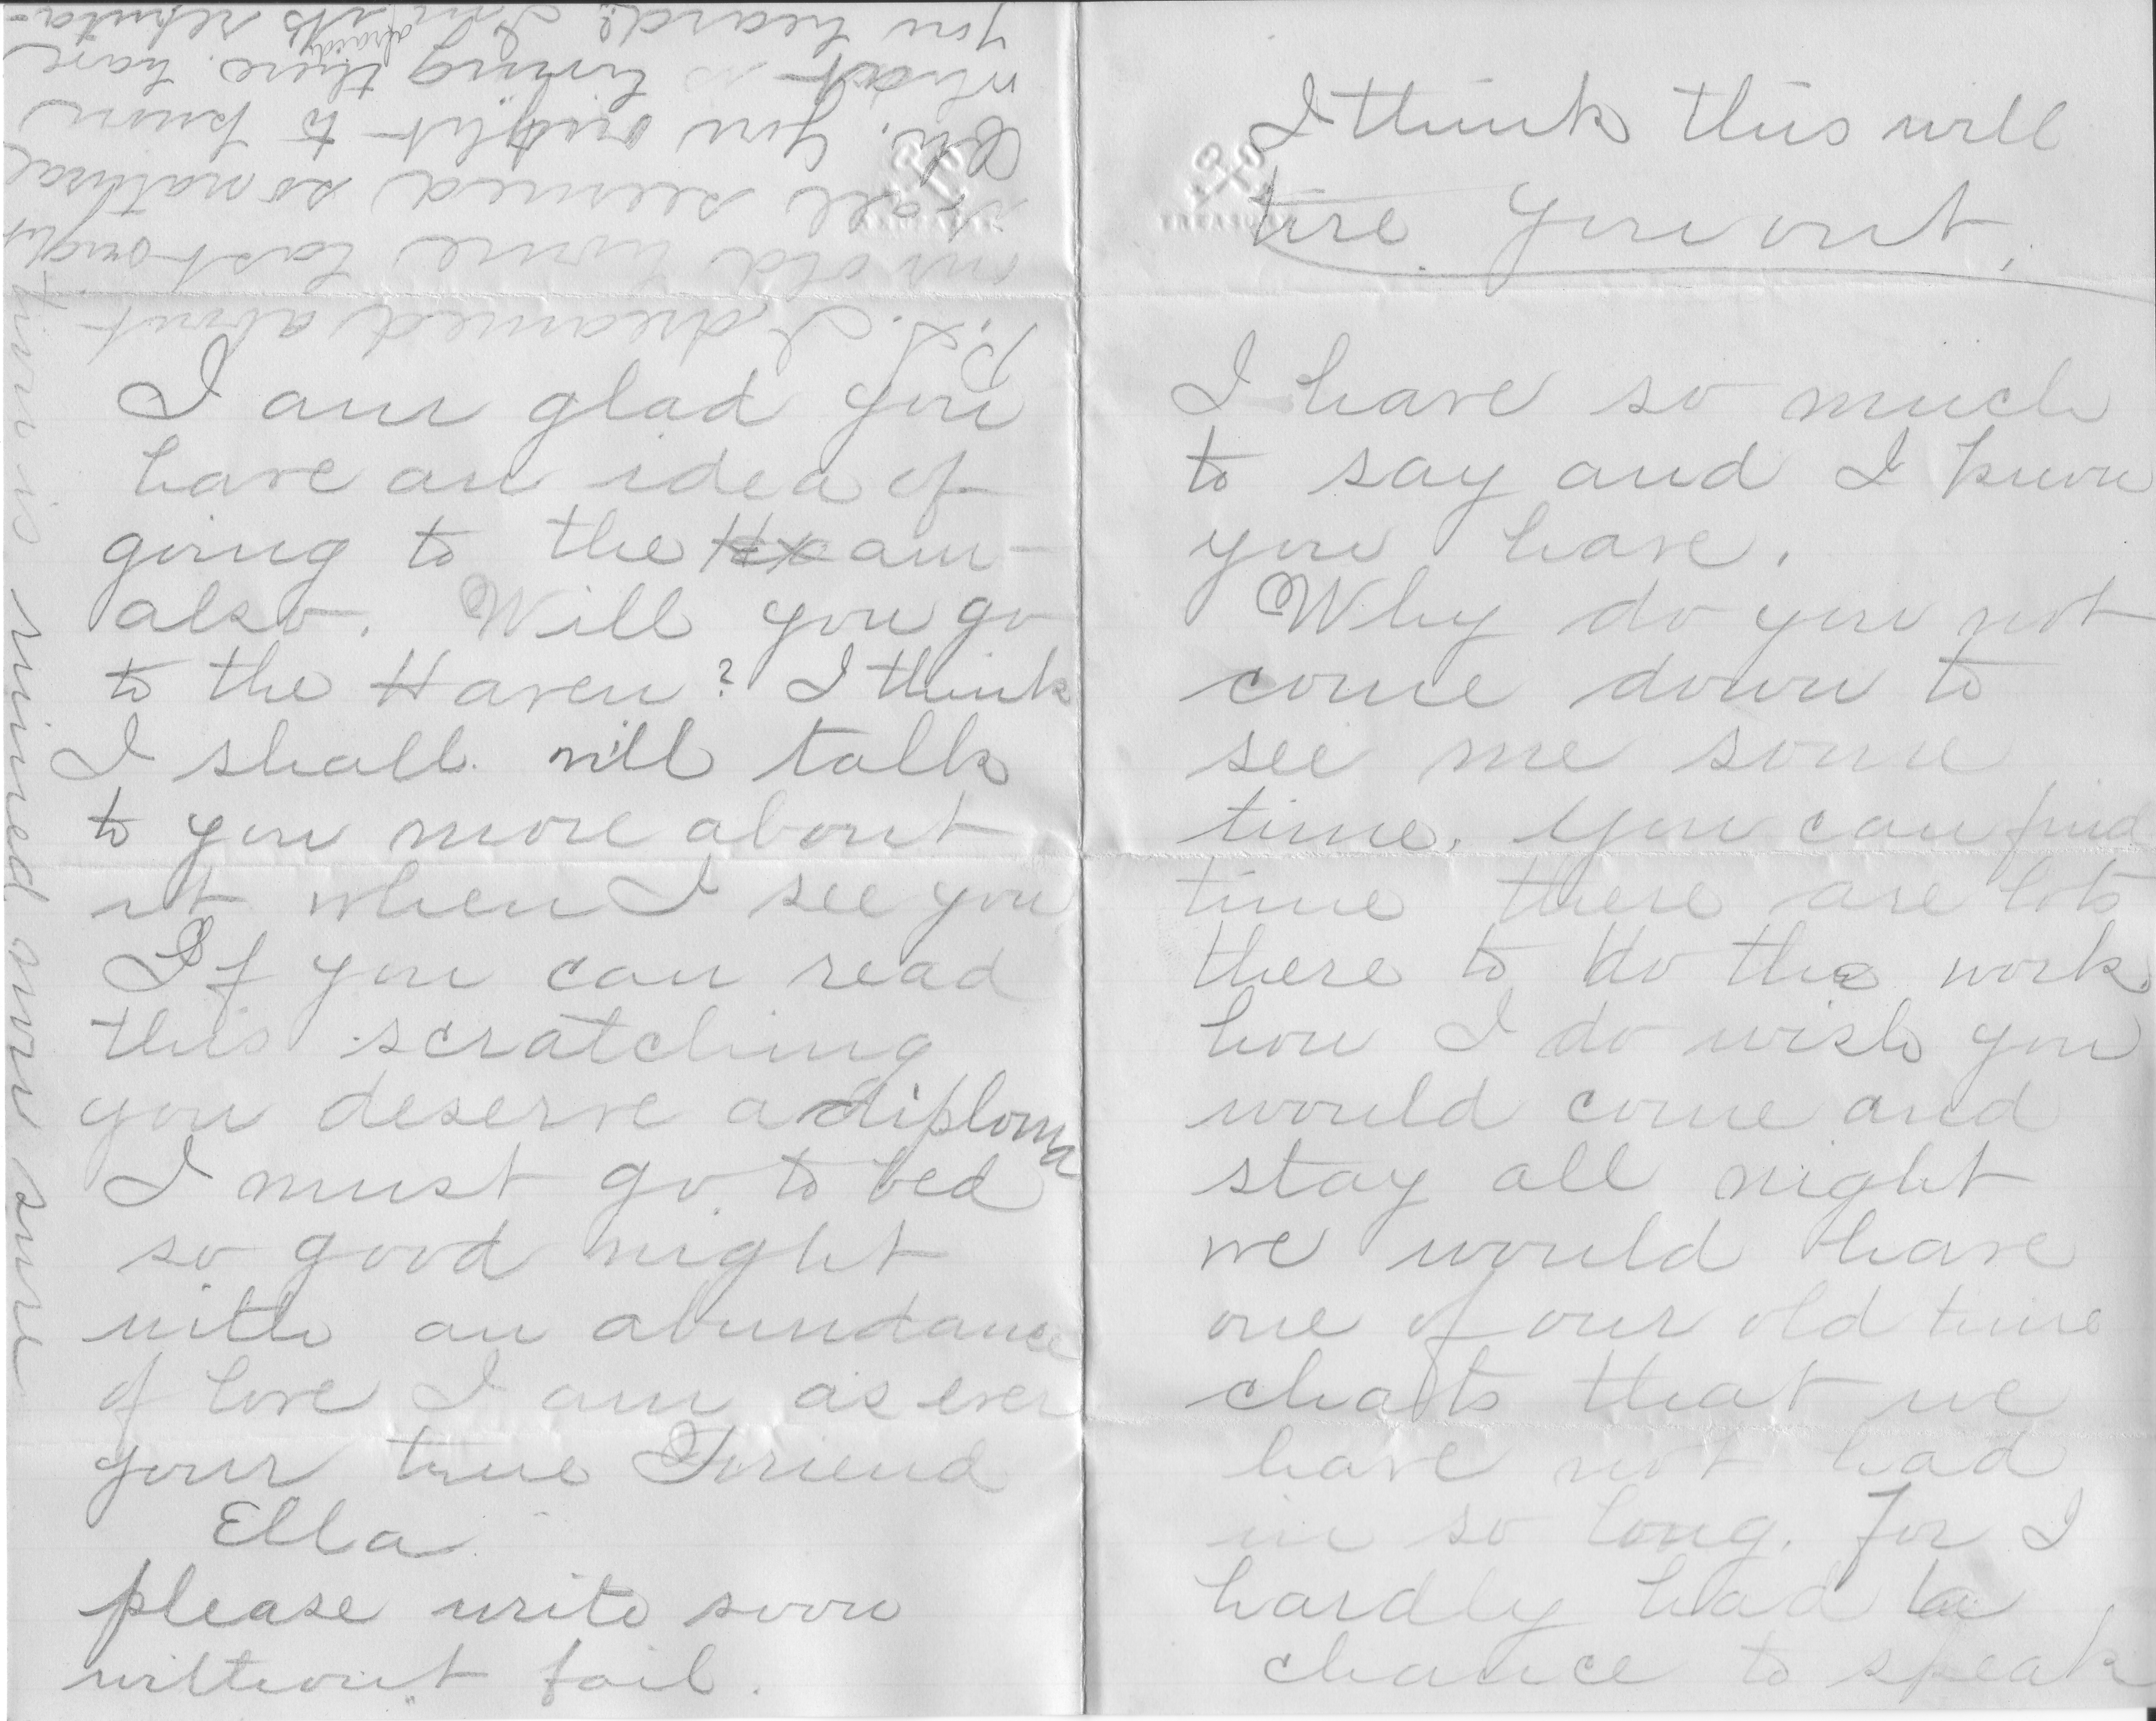 I think this will
tire you out.
I have so much
to say and I know
you have.
Why do you not
come down to
see me some
time. You can find
time there are lots
there to do the work
how I do wish you
would come and
stay all night
we would have
one of our old time
chats that we
have not had
in so long. For I
hardly had a
chance to speak
I am glad you
have an idea of
going to the Exam-
also. Will you go
to the Haven? I think
I shall. will talk
to you more about
it when I see you
If you can read
this scratching
you deserve a diploma
I must go to bed
so good night
with an abundance
of love I am as ever
your true Friend
Ella
please write soon
without fail.
P.S. I dreamed about
our old home last night
it all seemed so natural
Oh. you ought to know
what is living there. have
you heard? I'm afraid its reputa-
tion is ruined now sure
TREASURY